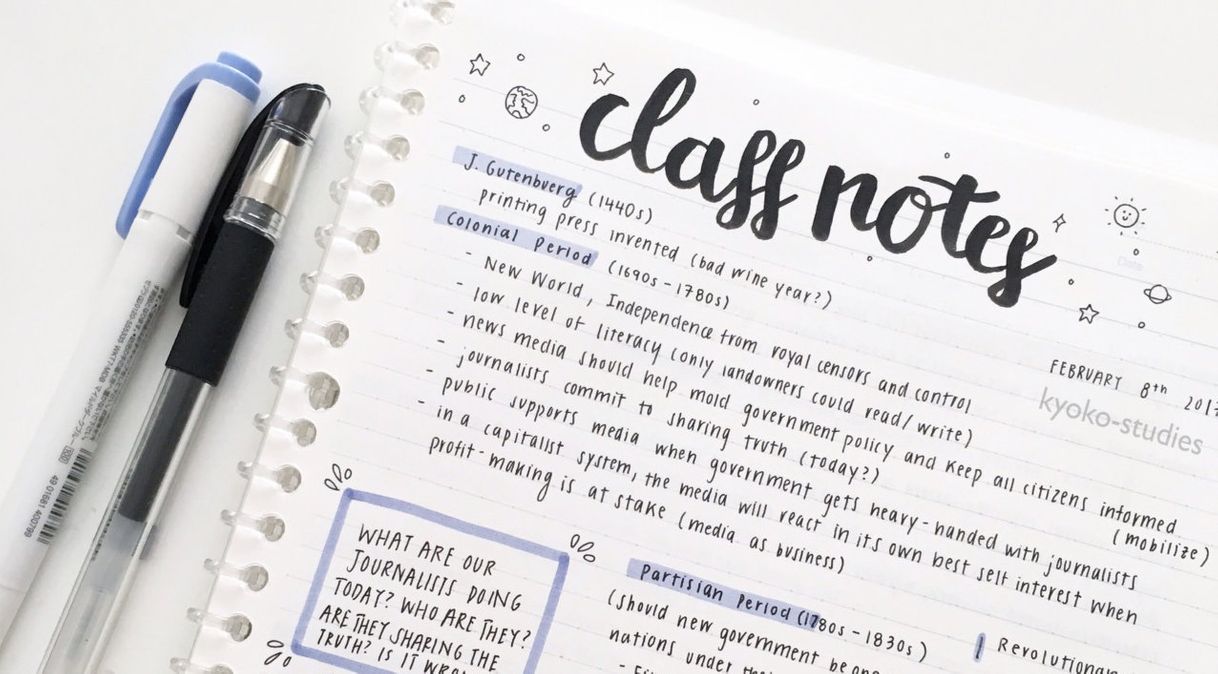 class notes
FEBRUARY 8th 2017
kyoko-studies
J. Gutenbuerg (1440s)
printing press invented (bad wine year?)
Colonial Period (1690s - 1780s)
- New World, Independence from royal censors and control
- low level of literacy (only landowners could read/write)
- news media should help mold government policy and keep all citizens informed
(mobilize)
- journalists commit to sharing truth (today?)
- public supports media when government gets heavy-handed with journalists
- in a capitalist system, the media will react in its own best self interest when
profit-making is at stake (media as business)
WHAT ARE OUR
JOURNALISTS DOING
TODAY? WHO ARE THEY?
ARE THEY SHARING THE
TRUTH? IS IT
Partisian Period (1780s - 1830s)
(should new government be one
nations under
Revolutionary
49 01681 400799